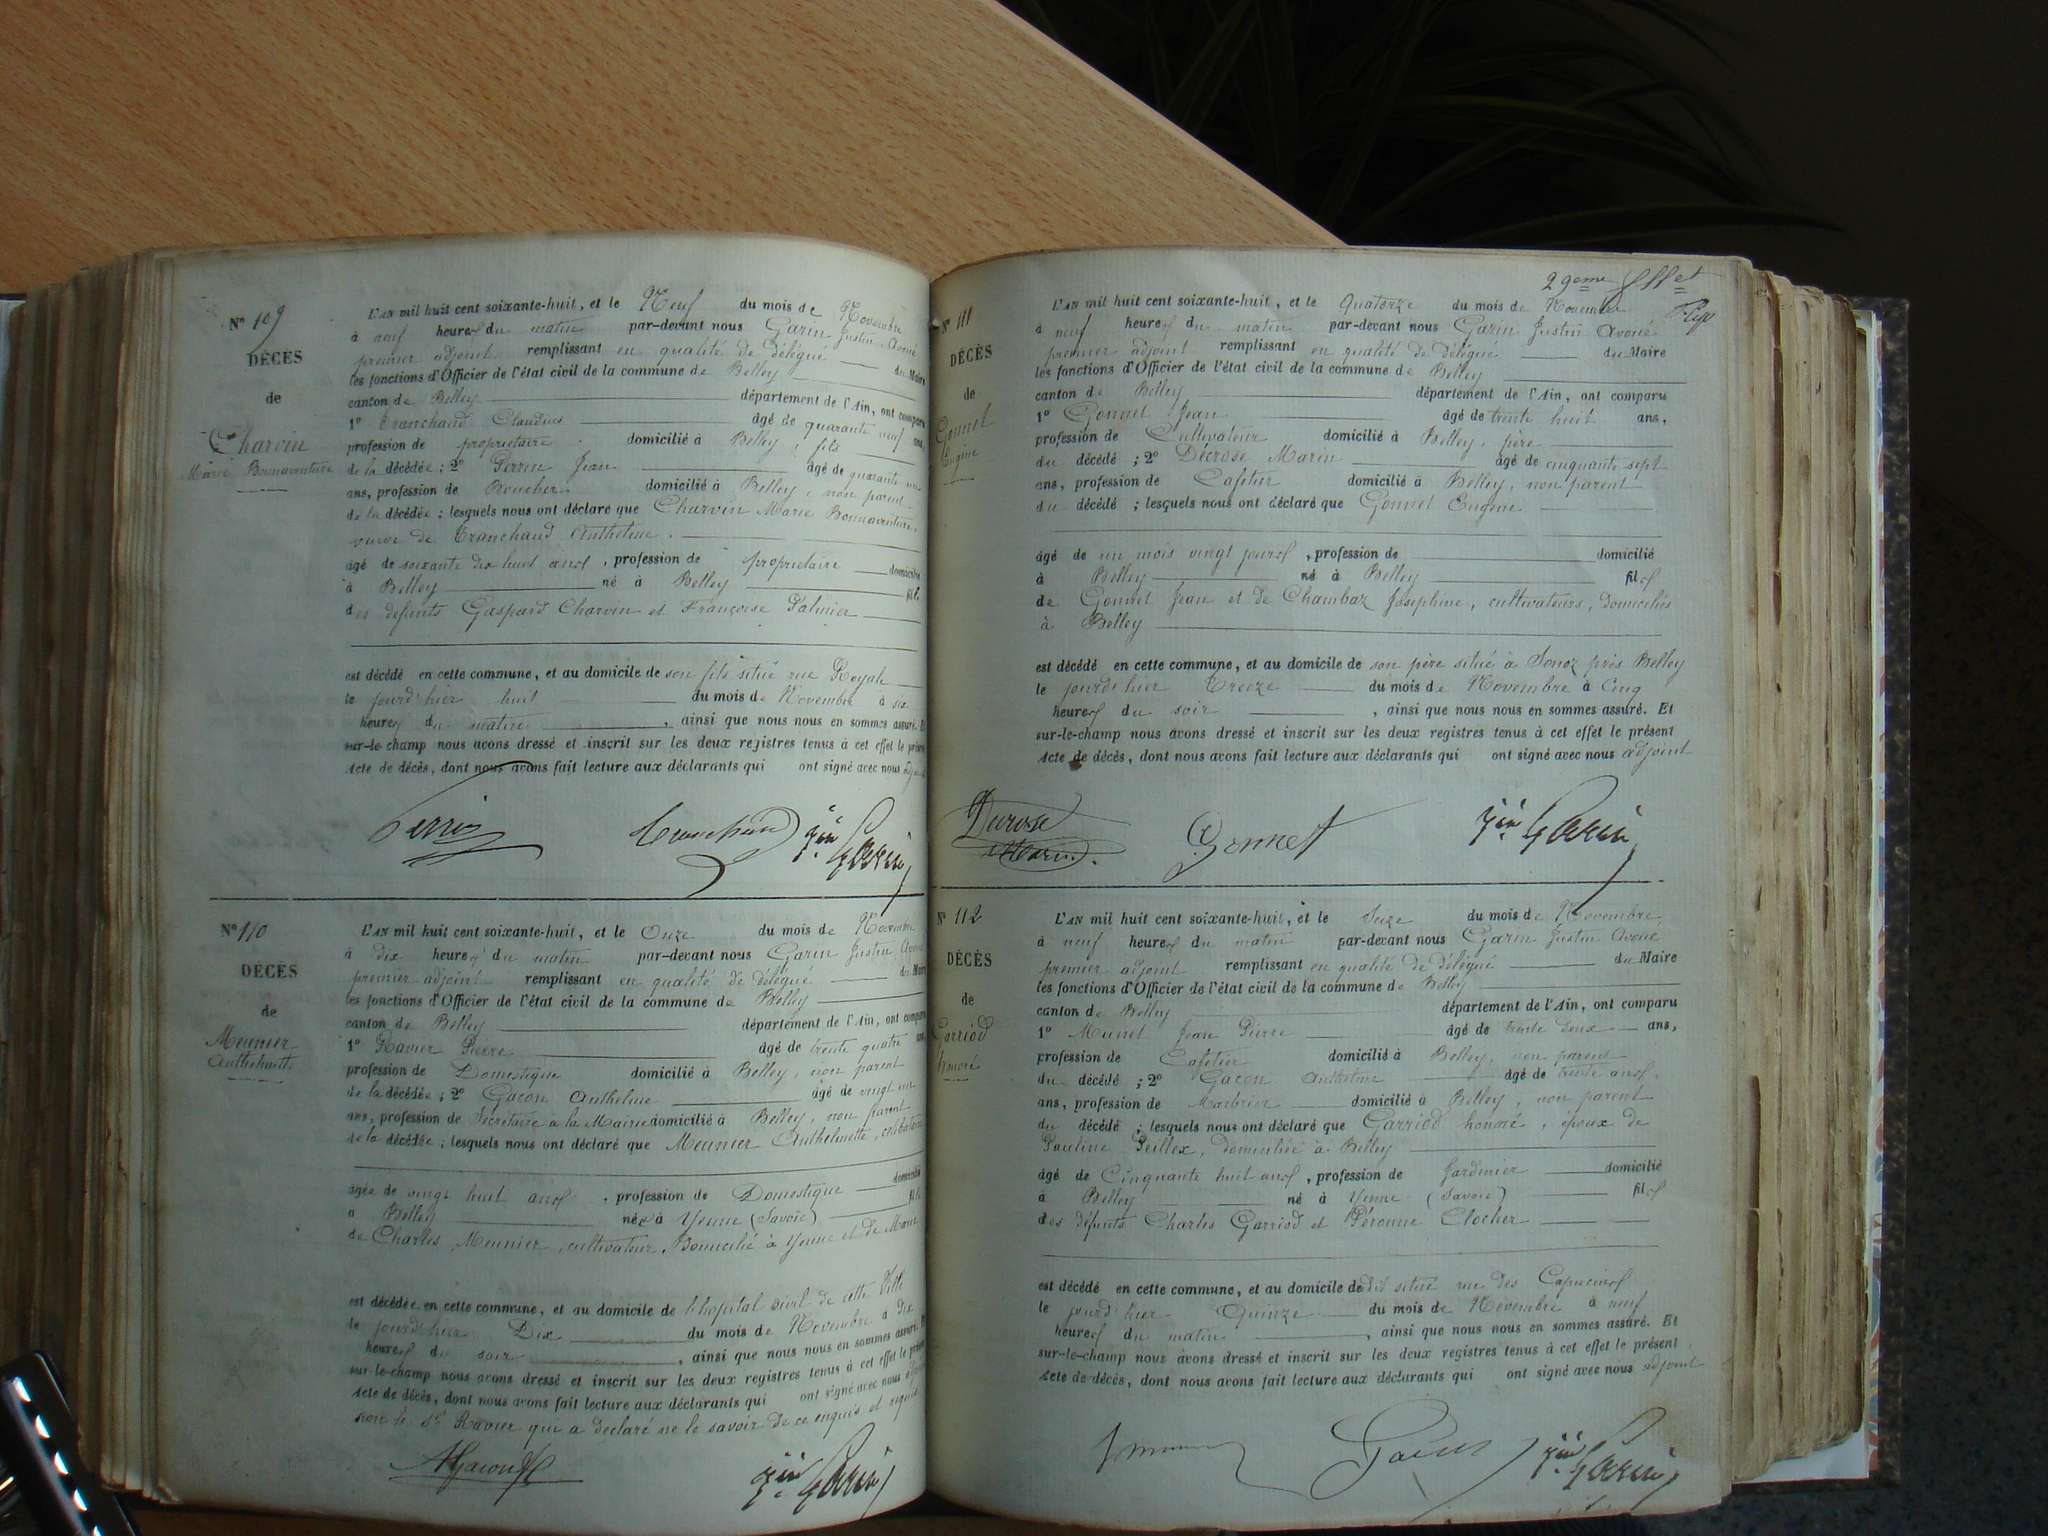 Nº 109
DÉCÈS
de
Charvin
Marie Bonnaventure
L'AN mil huit cent soixante-huit, et le Neuf du mois de Novembre
à neuf heures du matin par-devant nous Garin Justin Avoué
premier adjoint remplissant en qualité de délégué du Maire
les fonctions d'Officier de l'état civil de la commune de Belley
canton de Belley département de l'Ain, ont comparu
1º Tranchand Claudius âgé de quarante neuf ans,
profession de propriétaire domicilié à Belley, fils
de la décédée ; 2º Perrin Jean âgé de quarante un
ans, profession de Boucher domicilié à Belley, non parent
de la décédée ; lesquels nous ont déclaré que Charvin Marie Bonnaventure,
veuve de Tranchand Anthelme.
âgé de soixante dix huit ans, profession de propriétaire domicilié
à Belley né à Belley fille
des défunts Gaspard Charvin et Françoise
est décédé en cette commune, et au domicile de son fils situé rue Royale
le jourd'hier huit du mois de Novembre à six
heures du matin, ainsi que nous nous en sommes assuré. Et
sur-le-champ nous avons dressé et inscrit sur les deux registres tenus à cet effet le présent
Acte de décès, dont nous avons fait lecture aux déclarants qui ont signé avec nous adjoint
Perrin Tranchand Jin Garin
Nº 110
DÉCÈS
de
Meunier
Anthelmette
L'AN mil huit cent soixante-huit, et le Onze du mois de Novembre
à dix heures du matin par-devant nous Garin Justin Avoué
premier adjoint remplissant en qualité de délégué du Maire
les fonctions d'Officier de l'état civil de la commune de Belley
canton de Belley département de l'Ain, ont comparu
1º Ravier Pierre âgé de trente quatre ans,
profession de Domestique domicilié à Belley, non parent
de la décédée ; 2º Gacon Anthelme âgé de vingt un
ans, profession de Secrétaire à la Mairie domicilié à Belley, non parent
de la décédée ; lesquels nous ont déclaré que Meunier Anthelmette, célibataire
âgée de vingt huit ans, profession de Domestique domicilié
à Belley née à Yenne (Savoie) fille
de Charles Meunier, cultivateur, Domicilié à Yenne et de Marie
est décédée en cette commune, et au domicile de l'hopital civil de cette Ville
le jourd'hier Dix du mois de Novembre à dix
heures du soir, ainsi que nous nous en sommes assuré. Et
sur-le-champ nous avons dressé et inscrit sur les deux registres tenus à cet effet le présent
Acte de décès, dont nous avons fait lecture aux déclarants qui ont signé avec nous adjoint
non le Sr Ravier qui a déclaré ne le savoir de ce enquis et requis
AGacon Jin Garin
29eme ffllet
Nº 111
DÉCÈS
de
Gonnet
Eugène
L'AN mil huit cent soixante-huit, et le Quatorze du mois de Novembre
à neuf heures du matin par-devant nous Garin Justin Avoué
premier adjoint remplissant en qualité de délégué du Maire
les fonctions d'Officier de l'état civil de la commune de Belley
canton de Belley département de l'Ain, ont comparu
1º Gonnet Jean âgé de trente huit ans,
profession de Cultivateur domicilié à Belley, père
du décédé ; 2º Décrose Marin âgé de cinquante sept
ans, profession de Cafetier domicilié à Belley, non parent
du décédé ; lesquels nous ont déclaré que Gonnet Eugène
âgé de un mois vingt jours, profession de domicilié
à Belley né à Belley fils
de Gonnet Jean et de Chambaz Joséphine, cultivateurs, domiciliés
à Belley
est décédé en cette commune, et au domicile de son père situé à Sonoz près Belley
le jourd'hier Treize du mois de Novembre à Cinq
heures du soir, ainsi que nous nous en sommes assuré. Et
sur-le-champ nous avons dressé et inscrit sur les deux registres tenus à cet effet le présent
Acte de décès, dont nous avons fait lecture aux déclarants qui ont signé avec nous adjoint
Decrose Marin Gonnet Jin Garin
Nº 112
DÉCÈS
de
Garriod
honoré
L'AN mil huit cent soixante-huit, et le Seize du mois de Novembre
à neuf heures du matin par-devant nous Garin Justin Avoué
premier adjoint remplissant en qualité de délégué du Maire
les fonctions d'Officier de l'état civil de la commune de Belley
canton de Belley département de l'Ain, ont comparu
1º Jean Pierre âgé de trente deux ans,
profession de Cafetier domicilié à Belley, non parent
du décédé ; 2º Gacon Anthelme âgé de trente ans,
ans, profession de Marbrier domicilié à Belley, non parent
du décédé ; lesquels nous ont déclaré que Garriod honoré, époux de
Pauline Peillex, domiciliée à Belley
âgé de Cinquante huit ans, profession de Jardinier domicilié
à Belley né à Yenne (Savoie) fils
des défunts Charles Garriod et Péronne Clocher
est décédé en cette commune, et au domicile dedit situé rue des Capucins
le jourd'hier Quinze du mois de Novembre à neuf
heures du matin, ainsi que nous nous en sommes assuré. Et
sur-le-champ nous avons dressé et inscrit sur les deux registres tenus à cet effet le présent
Acte de décès, dont nous avons fait lecture aux déclarants qui ont signé avec nous adjoint
Jin Garin